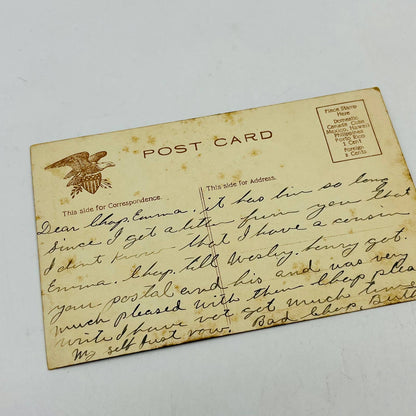 POST CARD
Place Stamp
Here
Domestic
Canada Cuba
Mexico, Hawaii
Philippines
Porto Rico
1 Cent
Foreign
2 Cents
This side for Correspondence.
This side for Address.
Dear Chap, Emma. it has bin so long
since I got a letter from you that
I dont know that I have a cousin
Emma. Chap. tell Wesley, henry got
your postal and his and was very
much pleased with them Chap please
write I have not got much time
My self just now. Bad Chap,